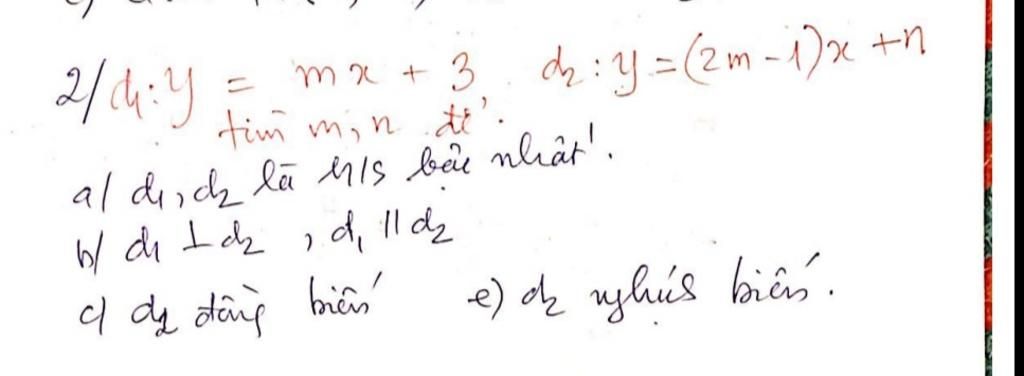 2/ d₁: y = mx + 3. d₂: y = (2m - 1)x + n
tìm m, n để.
a/ d₁, d₂ là h/s bậc nhất.
b/ d₁ ⊥ d₂, d₁ // d₂
c/ d₂ đồng biến e) d₂ nghịch biến.